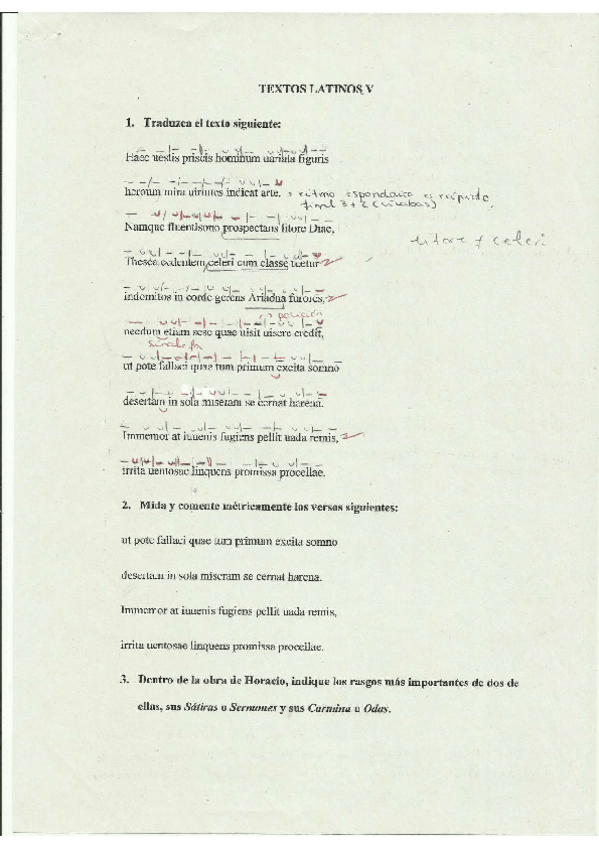 TEXTOS LATINOS V
1. Traduzca el texto siguiente:
Haec uestis priscis hominum uariata figuris
heroum mira uirtutes indicat arte.
ritmo espondaico
final 3+2 (sílabas)
Namque fluentisono prospectans litore Diae,
litore y celeri
Thesea cedentem celeri cum classe tuetur
indomitos in corde gerens Ariadna furores,
necdum etiam sese quae uisit uisere credit,
ut pote fallaci quae tum primum excita somno
desertam in sola miseram se cernat harena.
Immemor at iuuenis fugiens pellit uada remis,
irrita uentosae linquens promissa procellae.
2. Mida y comente métricamente los versos siguientes:
ut pote fallaci quae tum primum excita somno
desertam in sola miseram se cernat harena.
Immemor at iuuenis fugiens pellit uada remis,
irrita uentosae linquens promissa procellae.
3. Dentro de la obra de Horacio, indique los rasgos más importantes de dos de
ellas, sus Sátiras o Sermones y sus Carmina u Odas.